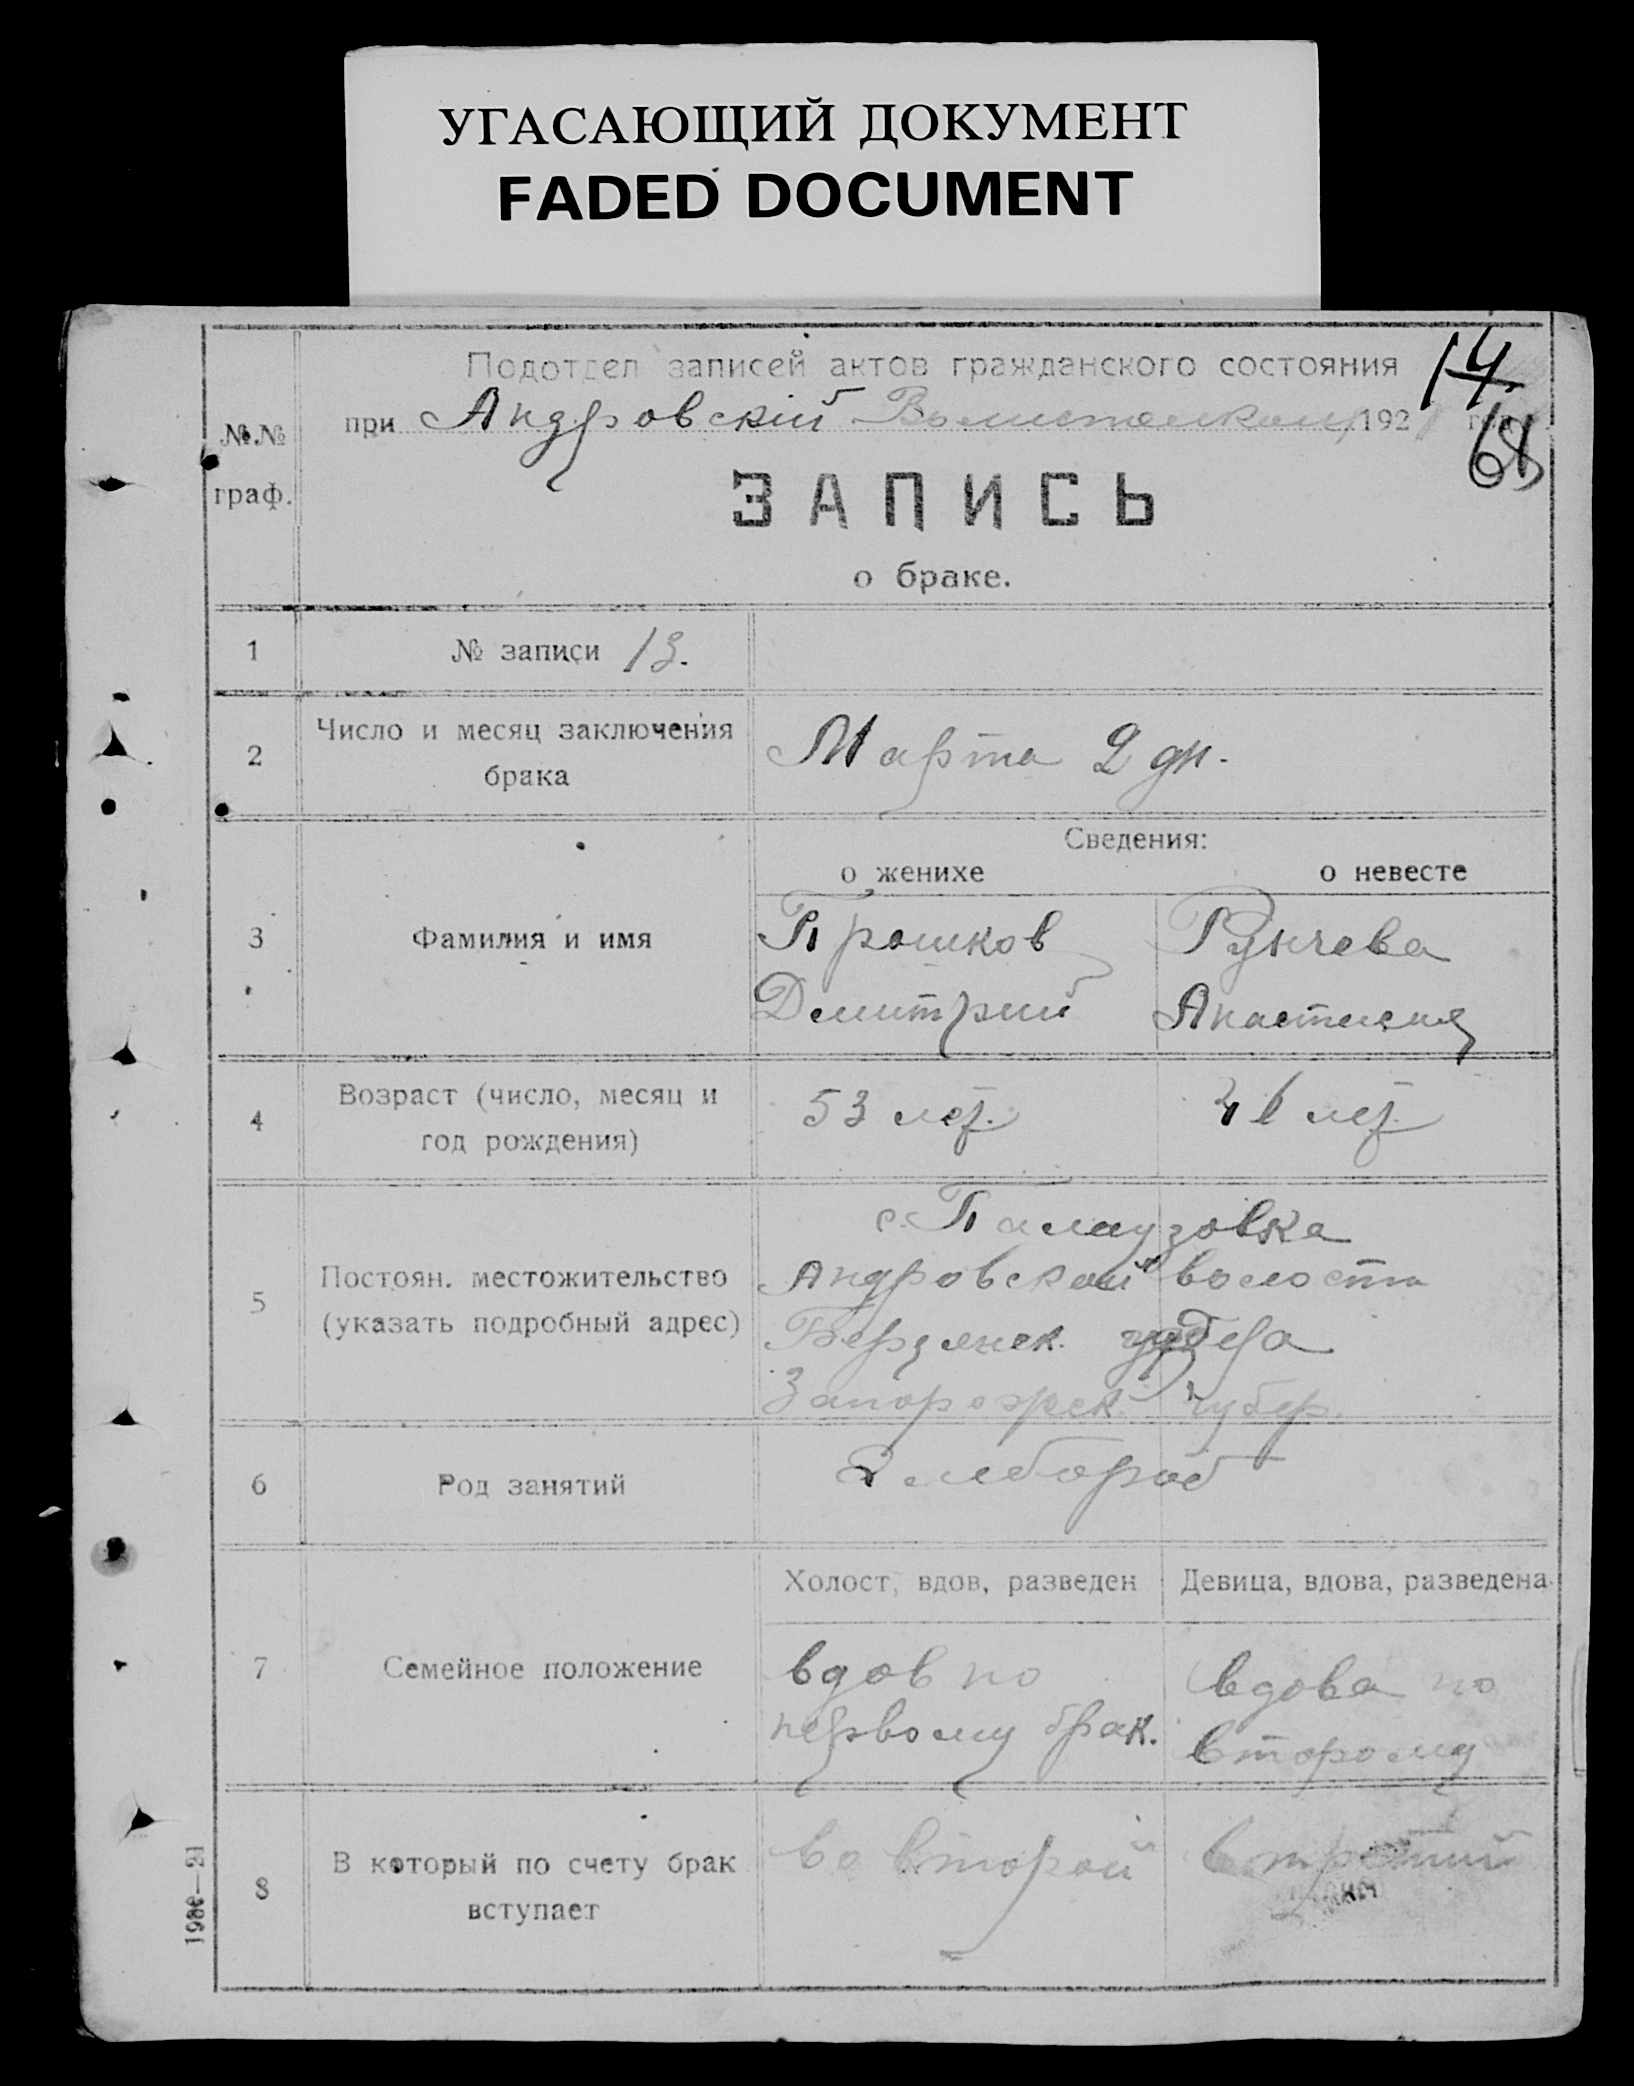 УГАСАЮЩИЙ ДОКУМЕНТ
FADED DOCUMENT
Подотдел записей актов гражданского состояния
14
при Андровскій 192 год
68
№№ граф.
ЗАПИСЬ
о браке.
1 № записи 13.
2 Число и месяц заключения брака Марта 2 дн.
Сведения:
о женихе о невесте
3 Фамилия и имя
Трошков Рунчева
Дмитрий Анастасия
4 Возраст (число, месяц и год рождения) 53 лет. лет.
5 Постоян. местожительство (указать подробный адрес)
с. Палаузовка
Андровской волости
Бердянск.
Запорожск. губер.
6 Род занятий Хлебороб
Холост, вдов, разведен Девица, вдова, разведена
7 Семейное положение
вдов по вдова по
первому брак. второму
8 В который по счету брак вступает во второй в третий